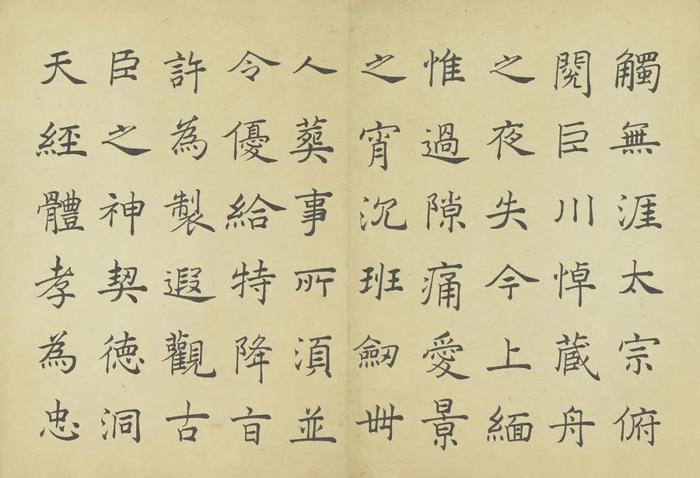 觸無涯太宗俯
閱巨川悼蔵舟
之夜失今上緬
惟過隙痛愛景
之宵沉班劒卌
人葬事所湏並
令優給特降㫖
許為製遐觀古
臣之神契徳洞
天經體孝為忠